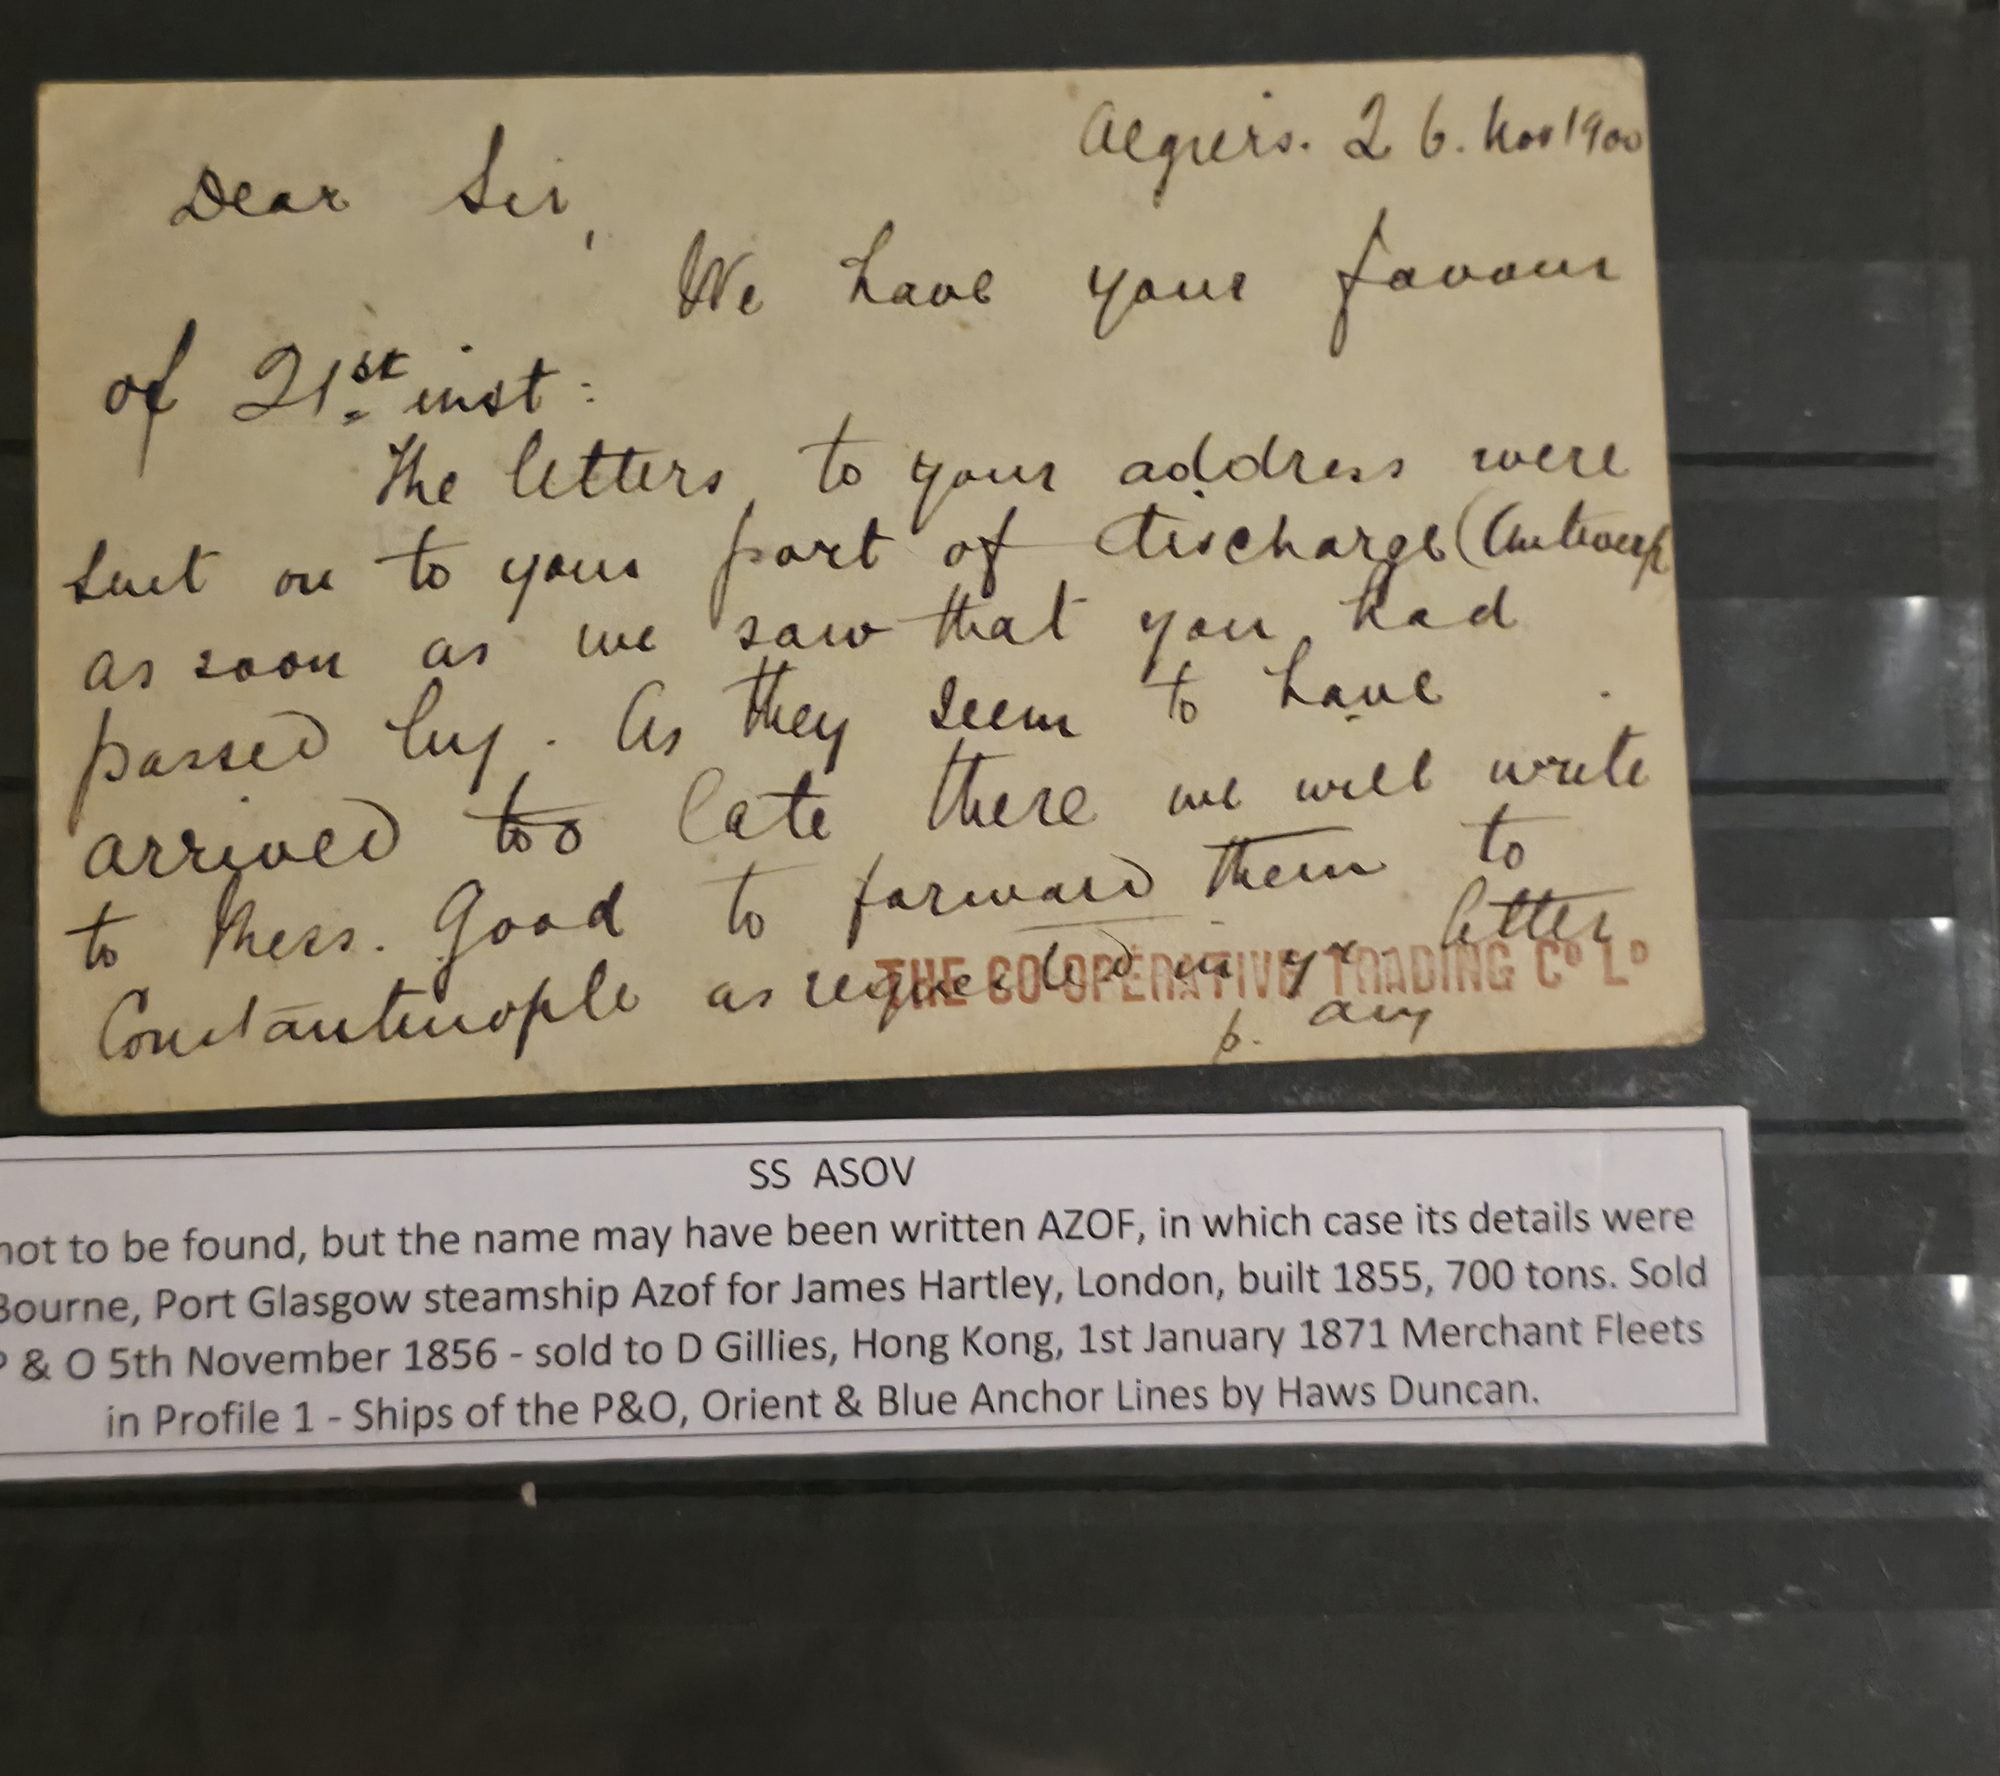 Algiers. 26. Nov 1900
Dear Sir,
We have your favour
of 21st inst:
The letters to your address were
sent on to your port of discharge (Antwerp
as soon as we saw that you had
passed by. As they seem to have
arrived too late there we will write
to Mess. Good to forward them to
Constantinople as requested in yr letter
THE CO-OPERATIVE TRADING Co Ld
p.
SS ASOV
not to be found, but the name may have been written AZOF, in which case its details were
Bourne, Port Glasgow steamship Azof for James Hartley, London, built 1855, 700 tons. Sold
P & O 5th November 1856 - sold to D Gillies, Hong Kong, 1st January 1871 Merchant Fleets
in Profile 1 - Ships of the P&O, Orient & Blue Anchor Lines by Haws Duncan.